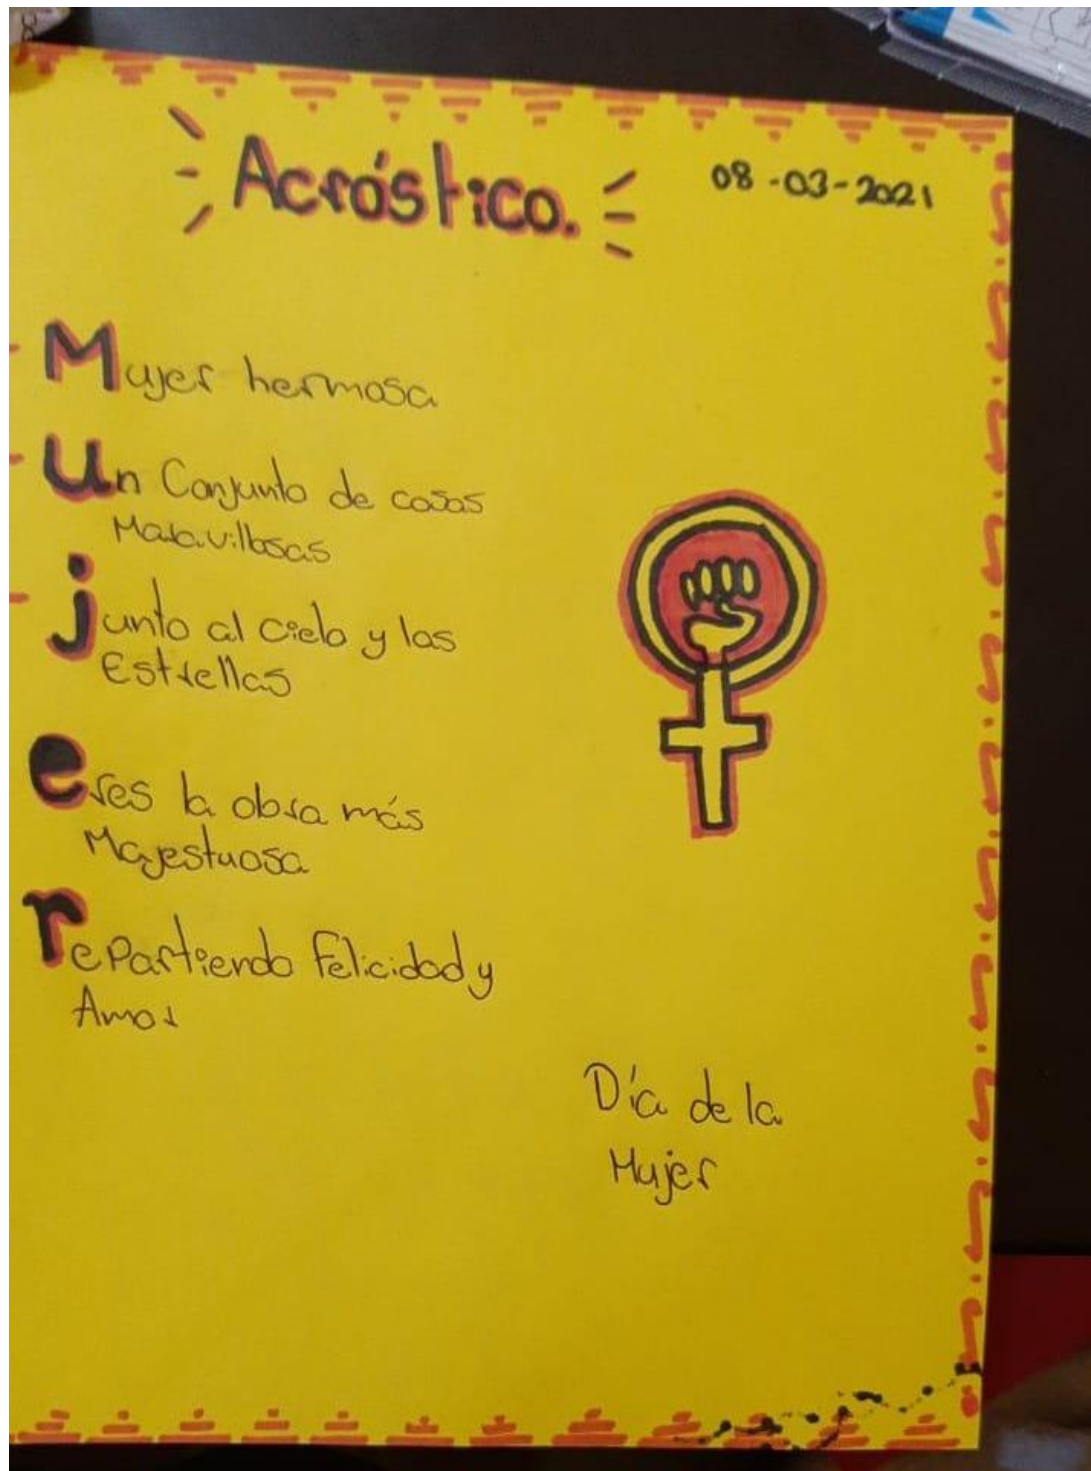 Acróstico.
08-03-2021
Mujer hermosa
Un Conjunto de cosas
Maravillosas
junto al cielo y las
Estrellas
eres la obra más
Majestuosa
repartiendo felicidad y
Amor
Día de la
Mujer